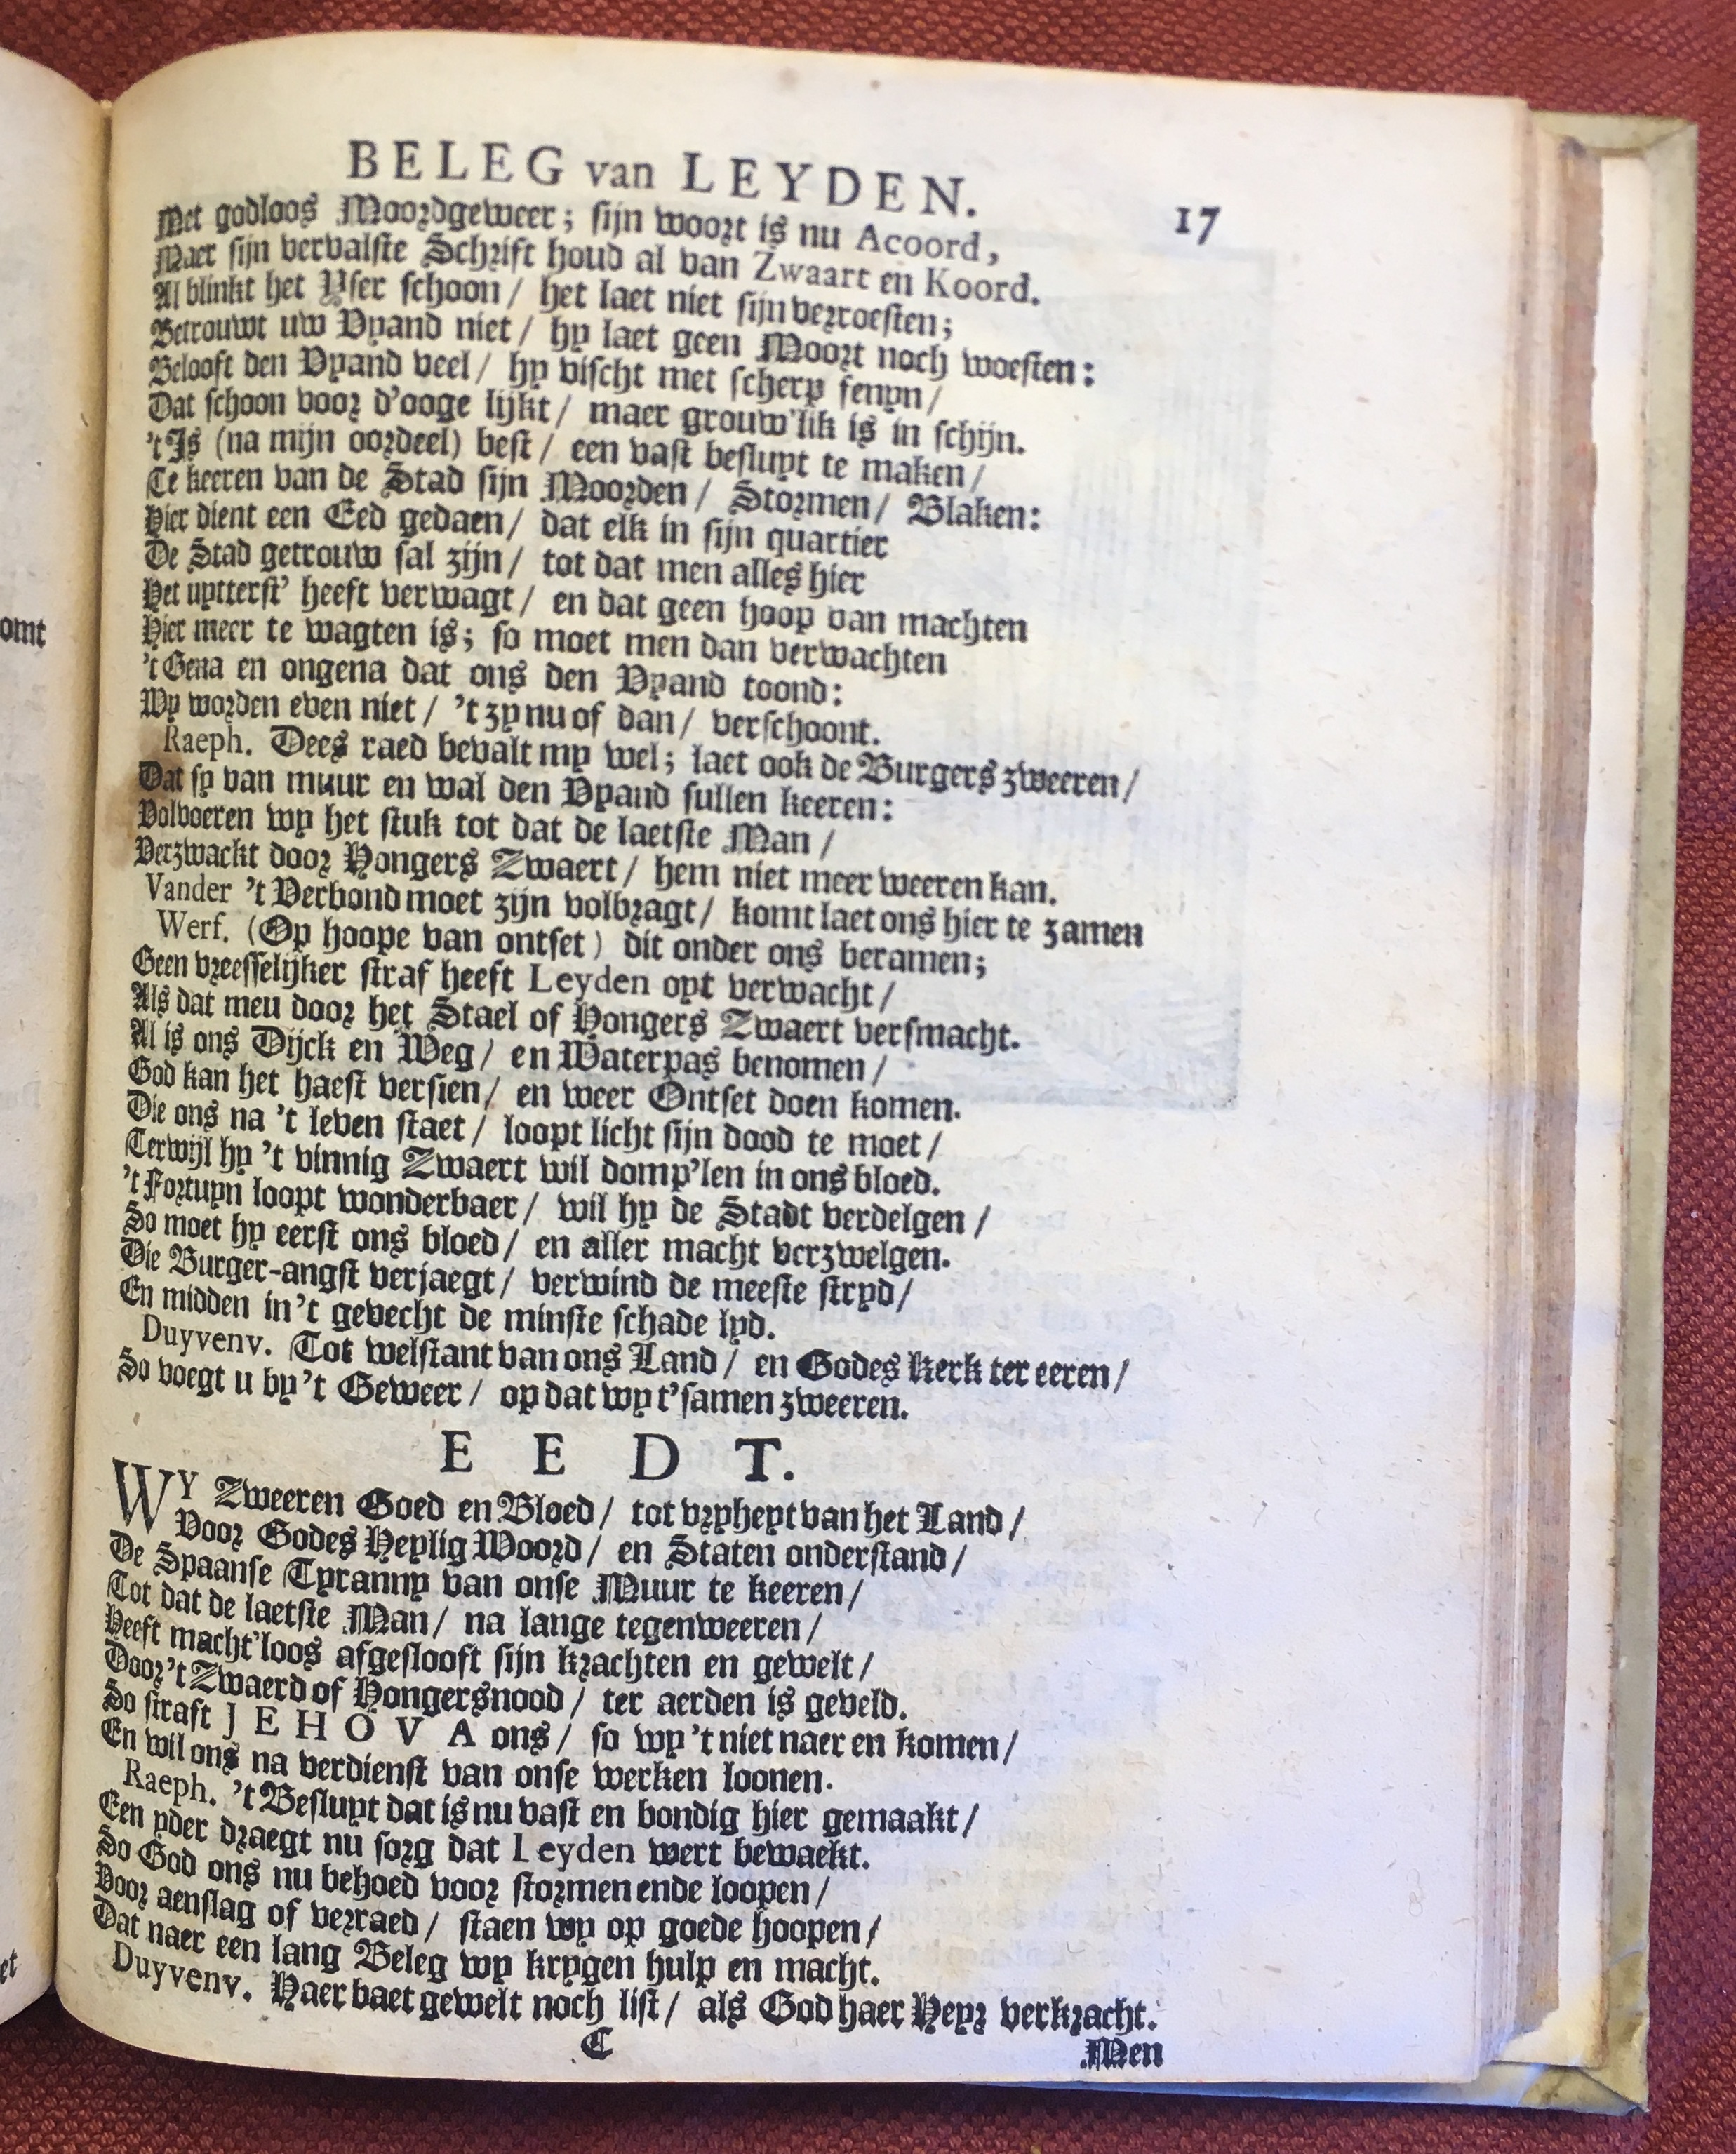 BELEG van LEYDEN. 17
Met godloos Moordgeweer; sijn woort is nu Acoord,
Maer sijn vervalste Schrift houd al van Zwaart en Koord.
Al blinkt het Yser schoon / het laet niet sijn verroesten;
Betrouwt uw Vyand niet / hy laet geen Moort noch woesten:
Belooft den Vyand veel / hy vischt met scherp fenyn /
Dat schoon voor d'ooge lijkt / maer grouw'lik is in schijn.
't Is (na mijn oordeel) best / een vast besluyt te maken /
Te keeren van de Stad sijn Moorden / Stormen / Blaken:
Hier dient een Eed gedaen / dat elk in sijn quartier
De Stad getrouw sal zijn / tot dat men alles hier
Het uytterst' heeft verwagt / en dat geen hoop van machten
Hier meer te wagten is; so moet men dan verwachten
't Gena en ongena dat ons den Vyand toond:
Wy worden even niet / 't zy nu of dan / verschoont.
Raeph. Dees raed bevalt my wel; laet ook de Burgers zweeren /
Dat sy van muur en wal den Vyand sullen keeren:
Volvoeren wy het stuk tot dat de laetste Man /
Verzwackt door Hongers Zwaert / hem niet meer weeren kan.
Vander 't Verbond moet zijn volbragt / komt laet ons hier te zamen
Werf. (Op hoope van ontset) dit onder ons beramen;
Geen vreesselijker straf heeft Leyden oyt verwacht /
Als dat meu door het Stael of Hongers Zwaert versmacht.
Al is ons Dijck en Weg / en Waterpas benomen /
God kan het haest versien / en weer Ontset doen komen.
Die ons na 't leven staet / loopt licht sijn dood te moet /
Terwijl hy 't vinnig Zwaert wil domp'len in ons bloed.
't Fortuyn loopt wonderbaer / wil hy de Stadt verdelgen /
So moet hy eerst ons bloed / en aller macht verzwelgen.
Die Burger-angst verjaegt / verwind de meeste stryd /
En midden in 't gevecht de minste schade lyd.
Duyvenv. Tot welstant van ons Land / en Godes Kerk ter eeren /
So voegt u by 't Geweer / op dat wy t'samen zweeren.
EEDT.
WY Zweeren Goed en Bloed / tot vryheyt van het Land /
Voor Godes Heylig Woord / en Staten onderstand /
De Spaanse Tyranny van onse Muur te keeren /
Tot dat de laetste Man / na lange tegenweeren /
Heeft macht'loos afgeslooft sijn krachten en gewelt /
Door 't Zwaerd of Hongersnood / ter aerden is geveld.
So straft JEHOVA ons / so wy 't niet naer en komen /
En wil ons na verdienst van onse werken loonen.
Raeph. 't Besluyt dat is nu vast en bondig hier gemaakt /
Een yder draegt nu sorg dat Leyden wert bewaekt.
So God ons nu behoed voor stormen ende loopen /
Voor aenslag of verraed / staen wy op goede hoopen /
Dat naer een lang Beleg wy krygen hulp en macht.
Duyvenv. Haer baet gewelt noch list / als God haer Heyr verkracht.
C Men
omt
et